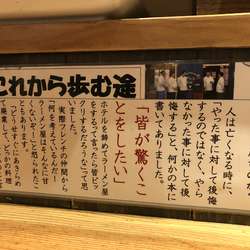 これから歩む途
人は亡くなる時に、
「やった事に対して後悔
するのではなく、やら
なかった事に対して後
悔する」と、何かの本に
書いてありました。
「皆が驚くこ
とをしたい」
ホテルを辞めてラーメン屋
をするって言ったら皆ビッ
クリするだろうなって思
いました。
実際フレンチの仲間から
「何を考えているんだ！
ラーメン屋はそんな甘
くないぞ〜」と怒られたこ
ともあります。